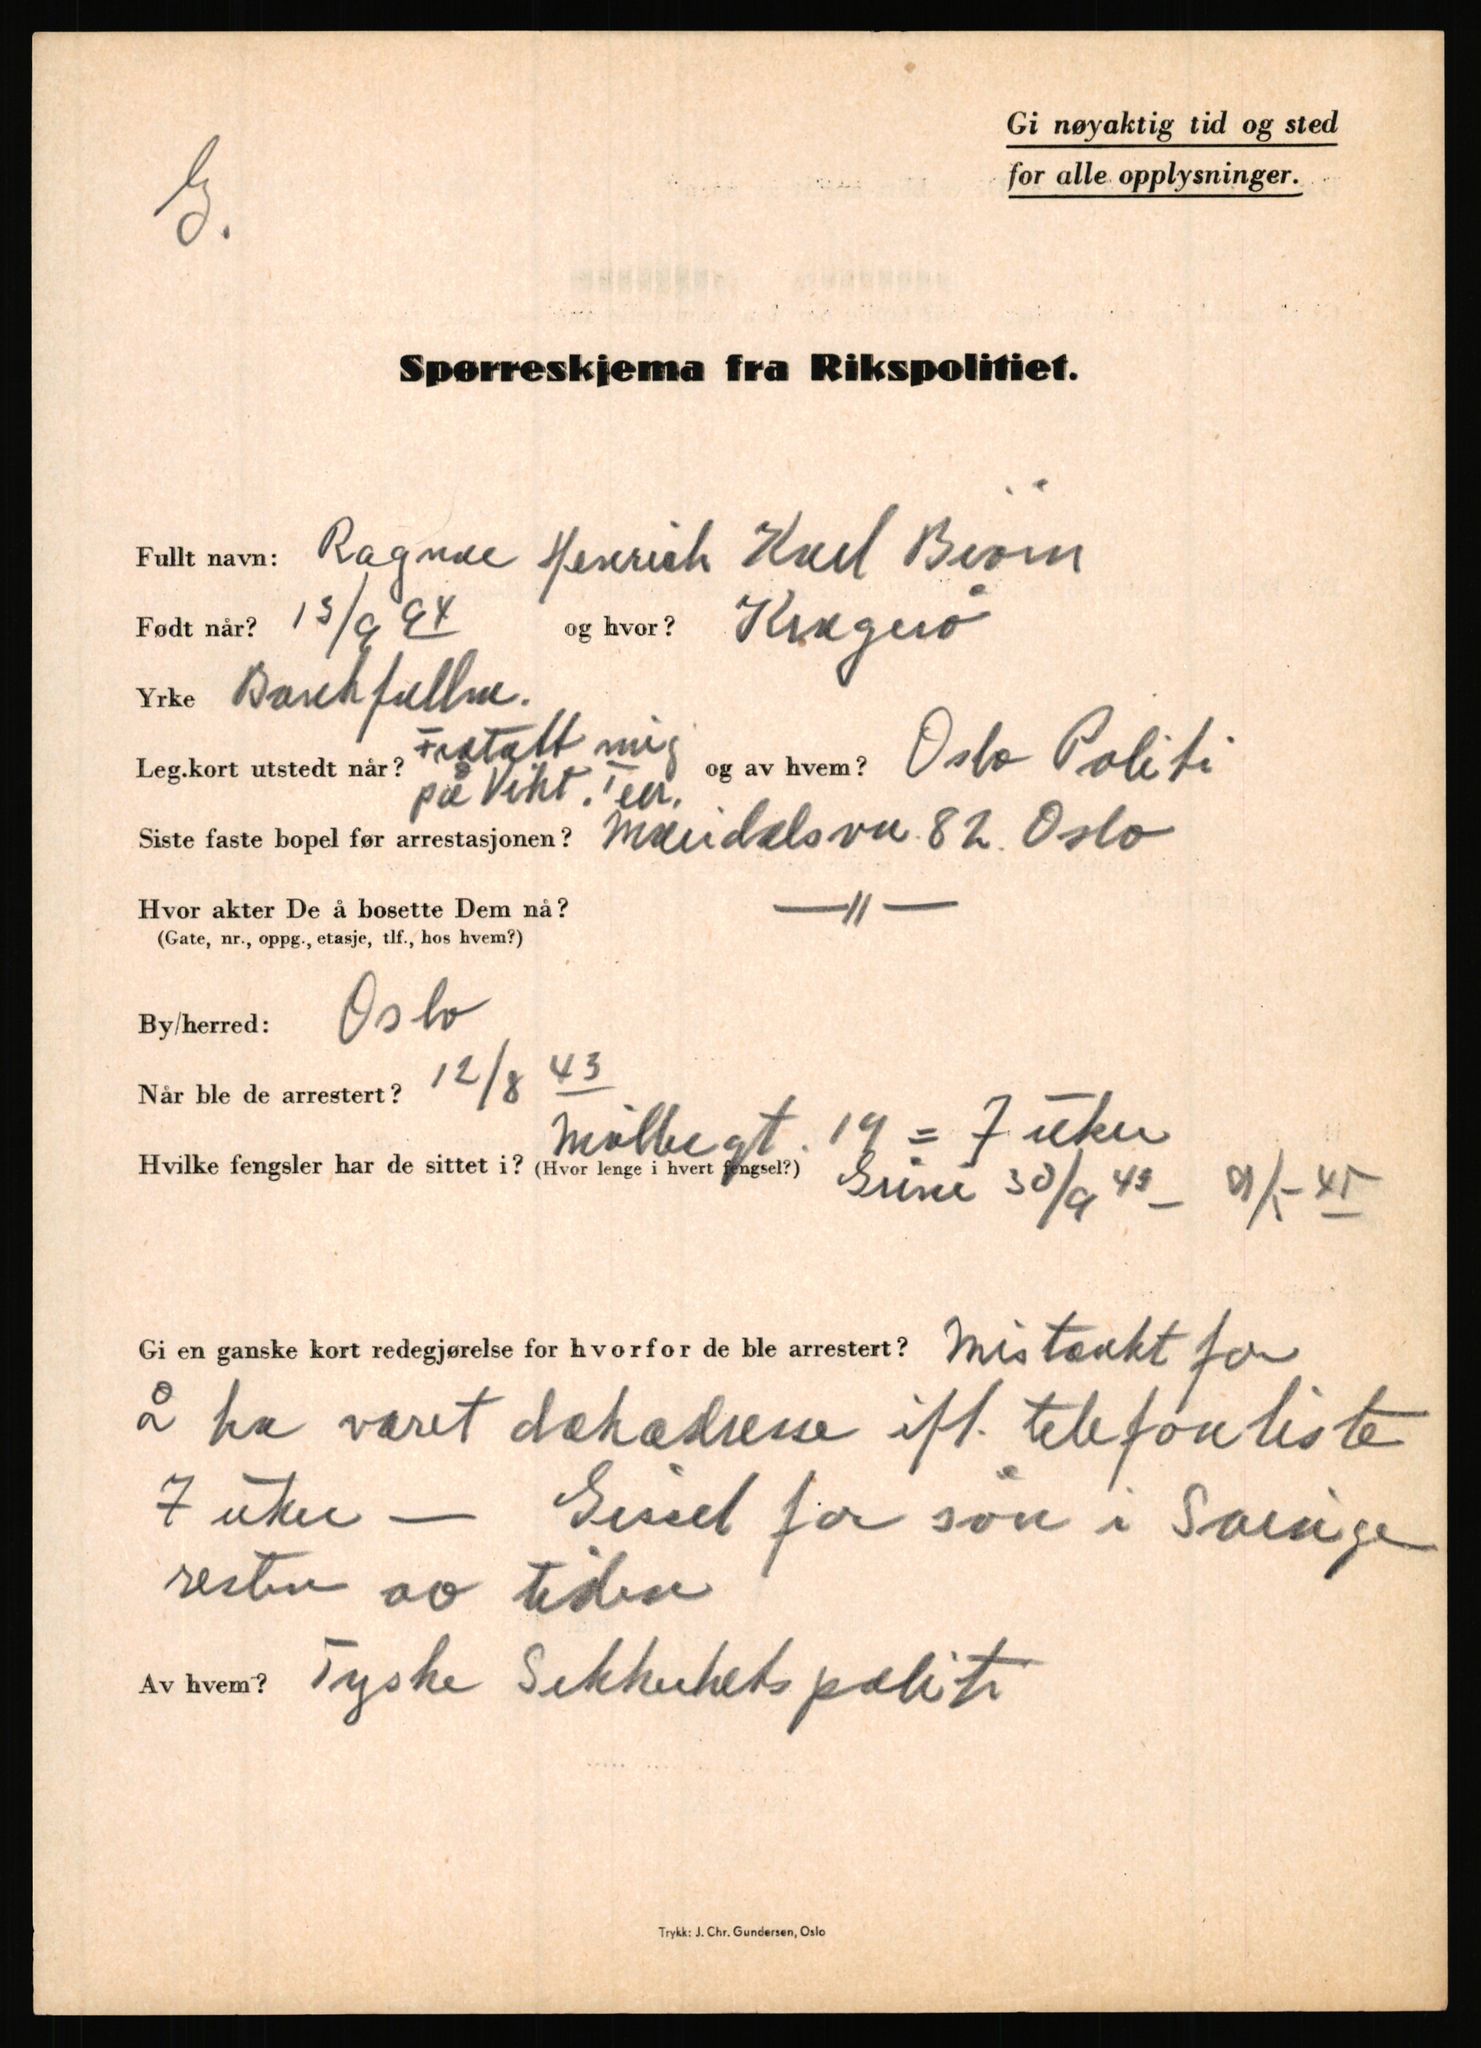 Gi nøyaktig tid og sted
for alle opplysninger.
G.
Spørreskjema fra Rikspolitiet.
Fullt navn: Ragnar Henrich Karl Biörn
Født når? 13/9 94 og hvor? Kragerö
Yrke Bankfullm.
Leg.kort utstedt når? Fratatt mig på Vikt. Terr. og av hvem? Oslo Politi
Siste faste bopel før arrestasjonen? Maridalsvn 82. Oslo
Hvor akter De å bosette Dem nå? —"—
(Gate, nr., oppg., etasje, tlf., hos hvem?)
By/herred: Oslo
Når ble de arrestert? 12/8 43
Hvilke fengsler har de sittet i? (Hvor lenge i hvert fengsel?) Möllergt. 19 = 7 uker
Grini 30/9 43 – /5 45
Gi en ganske kort redegjørelse for hvorfor de ble arrestert? Mistænkt for
å ha været dækadresse ifl. telefonliste
7 uker — Gissel for sön i Sverige
resten av tiden
Av hvem? Tyske Sikkerhetspoliti
Trykk: J. Chr. Gundersen, Oslo